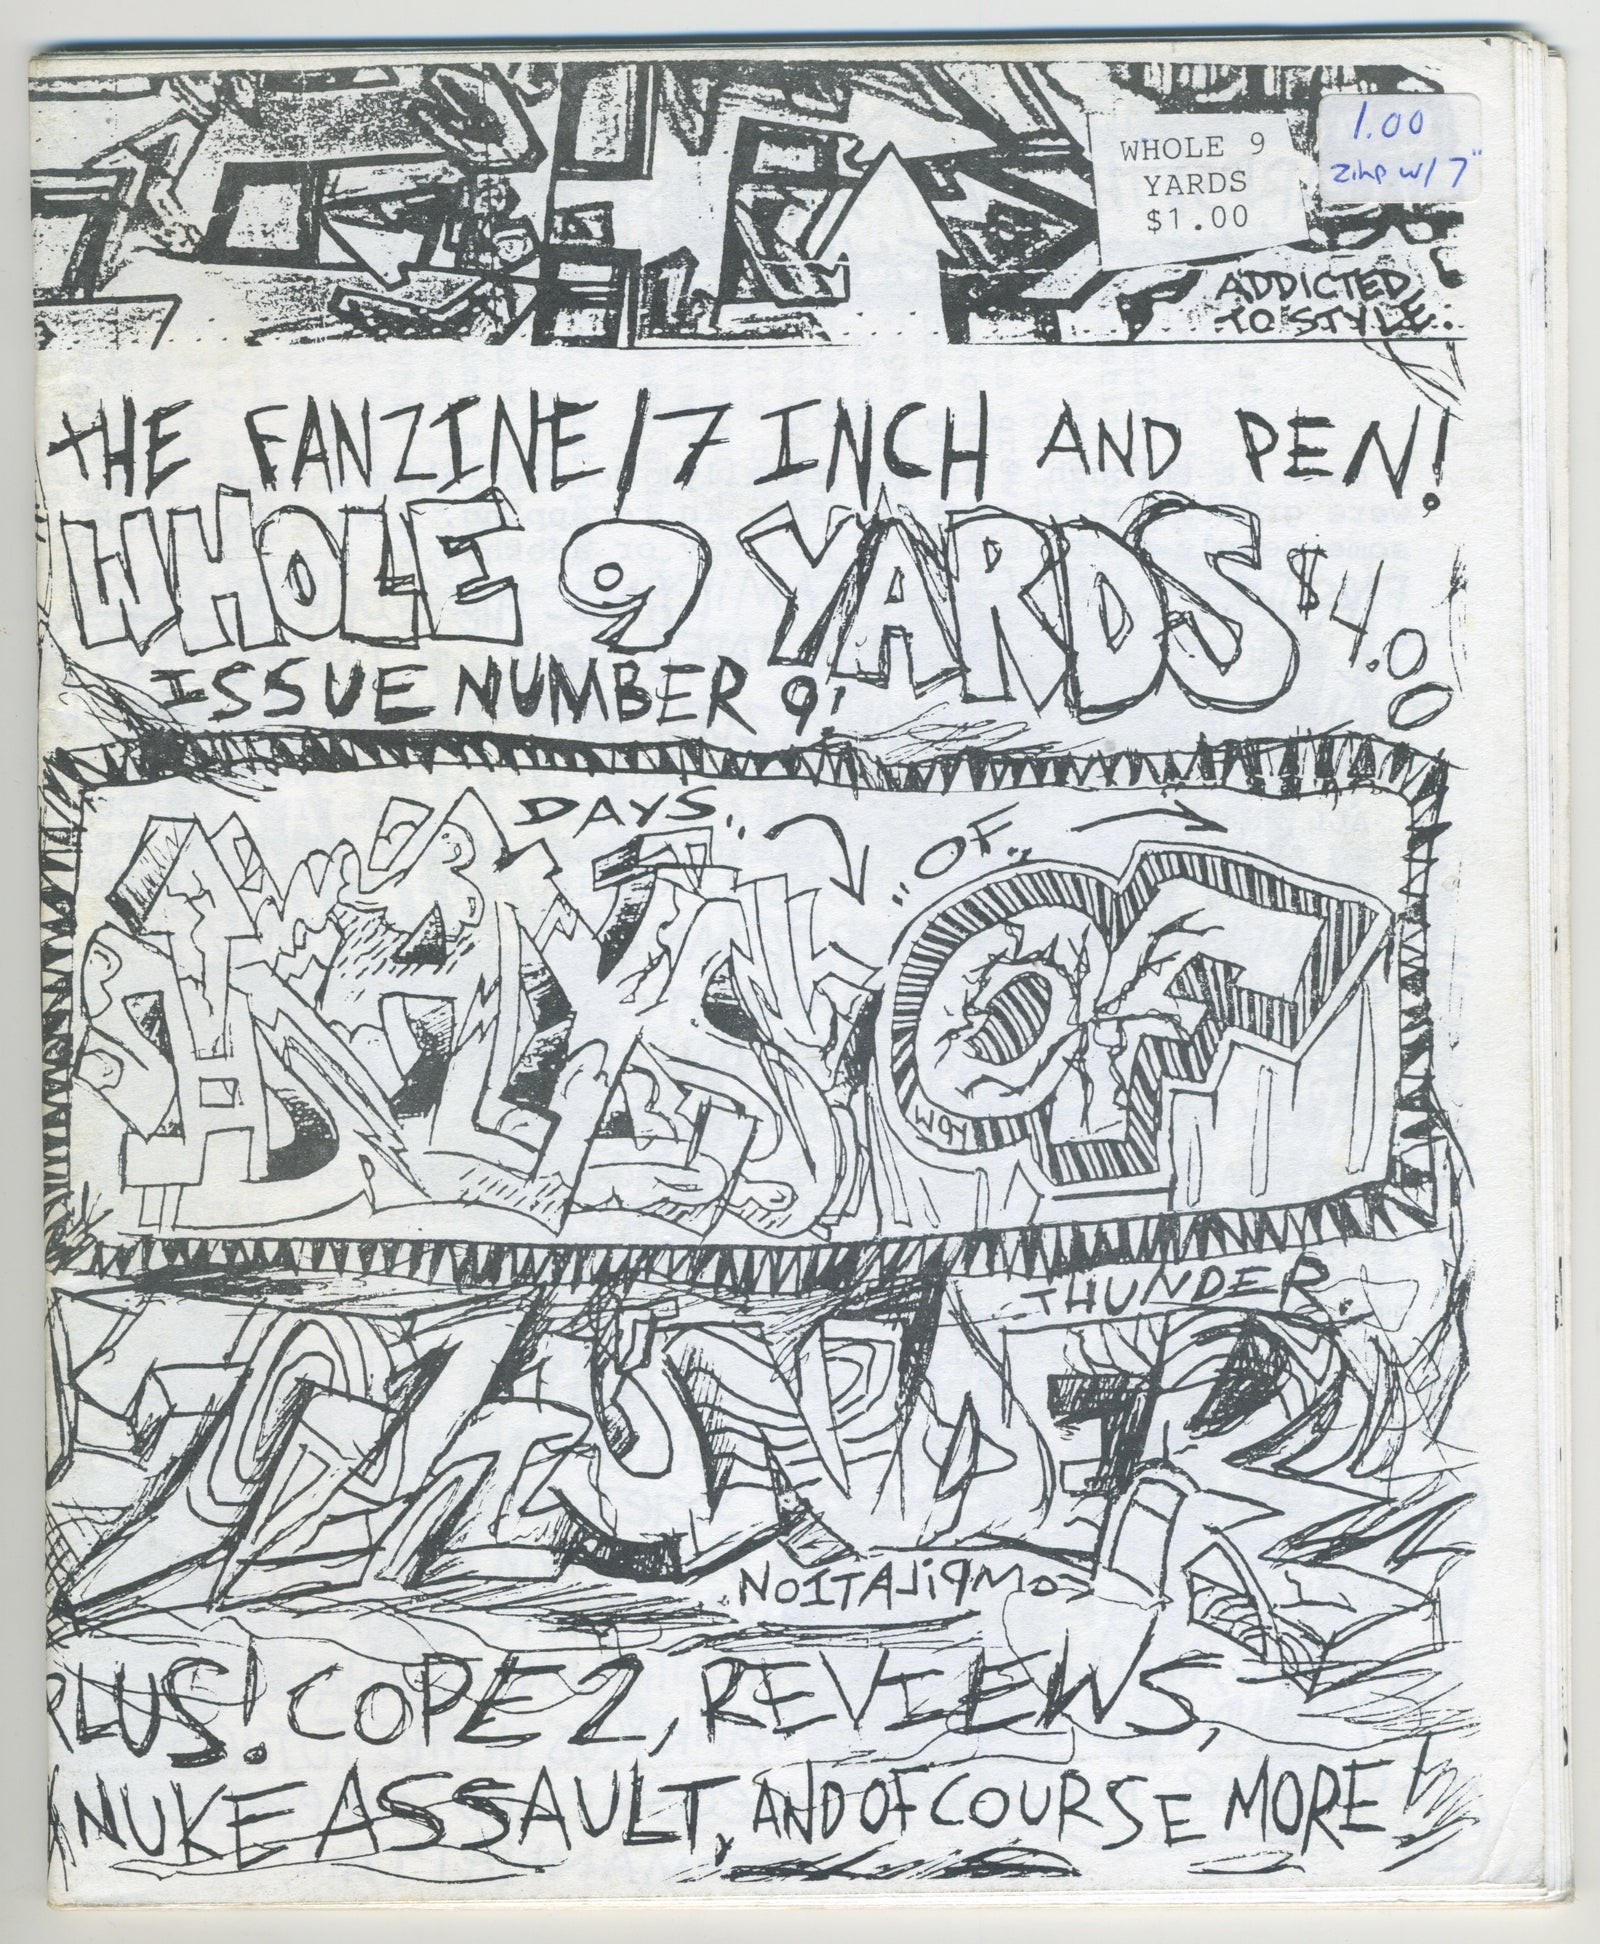 WHOLE 9
YARDS
$1.00
1.00
zine w/ 7"
ADDICTED
TO STYLE.
THE FANZINE/7 INCH AND PEN!
WHOLE 9 YARDS $4.00
ISSUE NUMBER 9!
DAYS..
"OF..
DAYS OF
THUNDER.
COMPiLATION
PLUS! COPE 2, REVIEWS,
NUKE ASSAULT, AND OF COURSE MORE!